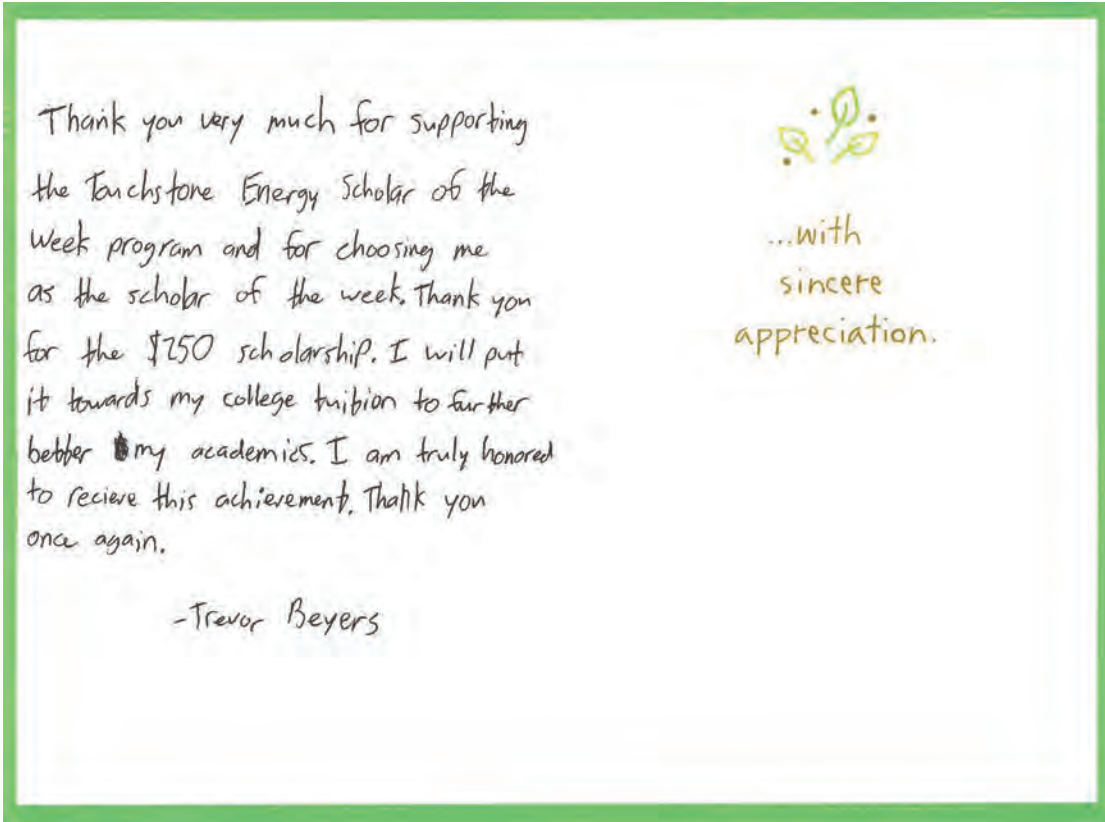 Thank you very much for supporting
the Touchstone Energy Scholar of the
Week program and for choosing me
as the scholar of the week. Thank you
for the $250 scholarship. I will put
it towards my college tuition to further
better my academics. I am truly honored
to recieve this achievement. Thank you
once again.
-Trevor Beyers
...with
sincere
appreciation.